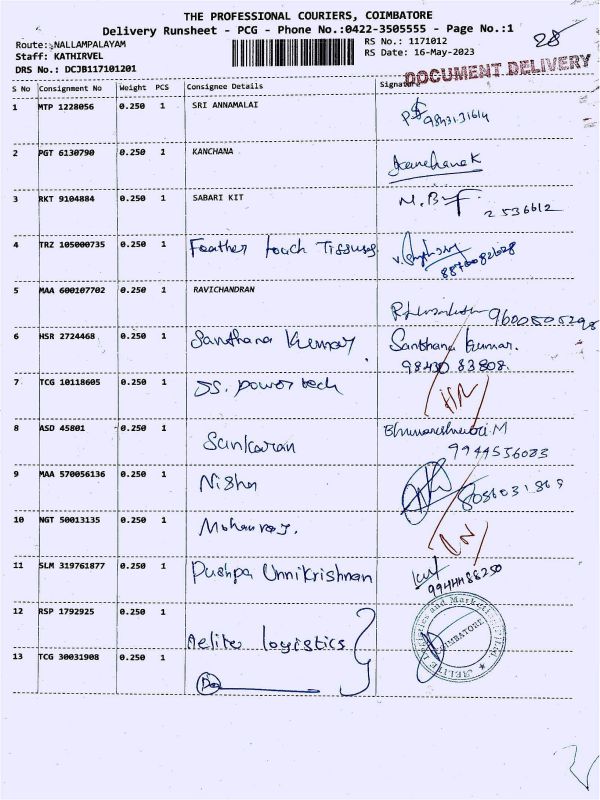 THE PROFESSIONAL COURIERS, COIMBATORE
Delivery Runsheet - PCG - Phone No.:0422-3505555 - Page No.:1
28
Route: NALLAMPALAYAM RS No.: 1171012
Staff: KATHIRVEL RS Date: 16-May-2023
DRS No.: DCJB117101201
DOCUMENT DELIVERY
S No Consignment No Weight PCS Consignee Details Signature
1 MTP 1228056 0.250 1 SRI ANNAMALAI
9843131614
2 PGT 6130790 0.250 1 KANCHANA
Kanchana K
3 RKT 9104884 0.250 1 SABARI KIT
2536612
4 TRZ 105000735 0.250 1 Feather touch Tissues
5 MAA 600107702 0.250 1 RAVICHANDRAN
9600505298
6 HSR 2724468 0.250 1 Santhana Kumar Santhana Kumar.
98430 83808.
7 TCG 10118605 0.250 1 SS. power tech
8 ASD 45801 0.250 1 Sankaran Bhuvaneshwari M
9944556083
9 MAA 570056136 0.250 1 Nisha
10 NGT 50013135 0.250 1 Mohanraj.
11 SLM 319761877 0.250 1 Pushpa Unnikrishnan
9944488250
12 RSP 1792925 0.250 1 Aelite logistics
13 TCG 30031908 0.250 1 Do
COIMBATORE